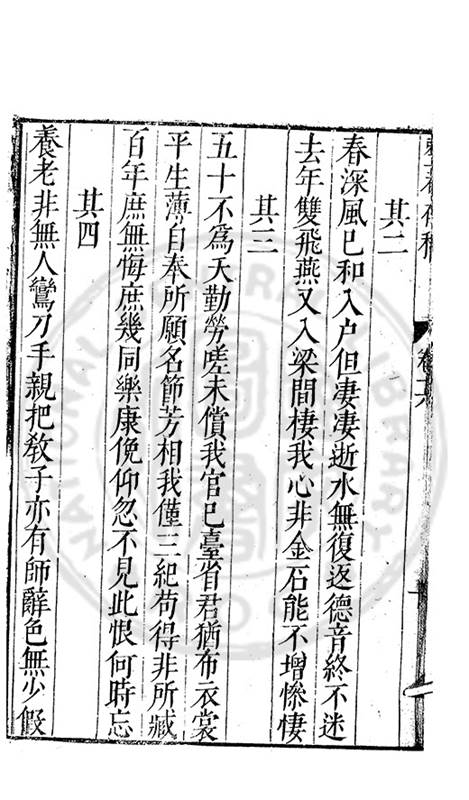 其二
春深風已和入户但凄凄逝水無復返德音終不迷
去年雙飛燕又入梁間棲我心非金石能不增慘棲
其三
五十不為夭勤勞嗟未償我官已臺省君猶布衣裳
平生薄自奉所願名節芳相我僅三紀苟得非所臧
百年庶無悔庶幾同樂康俛仰忽不見此恨何時忘
其四
養老非無人鸞刀手親把敎子亦有師辭色無少假